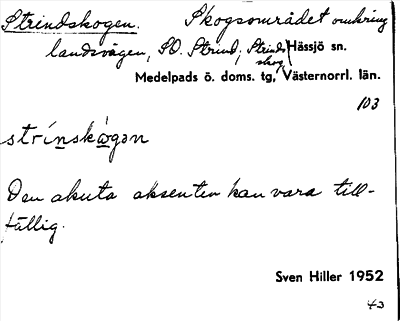 Strindskogen. Skogsområdet omkring
landsvägen, SO. Strind; Strinds Hässjö sn.
skog
Medelpads ö. doms. tg, Västernorrl. län.
103
strínskɷ̀gən
Den akuta aksenten kan vara till-
fällig.
Sven Hiller 1952
43